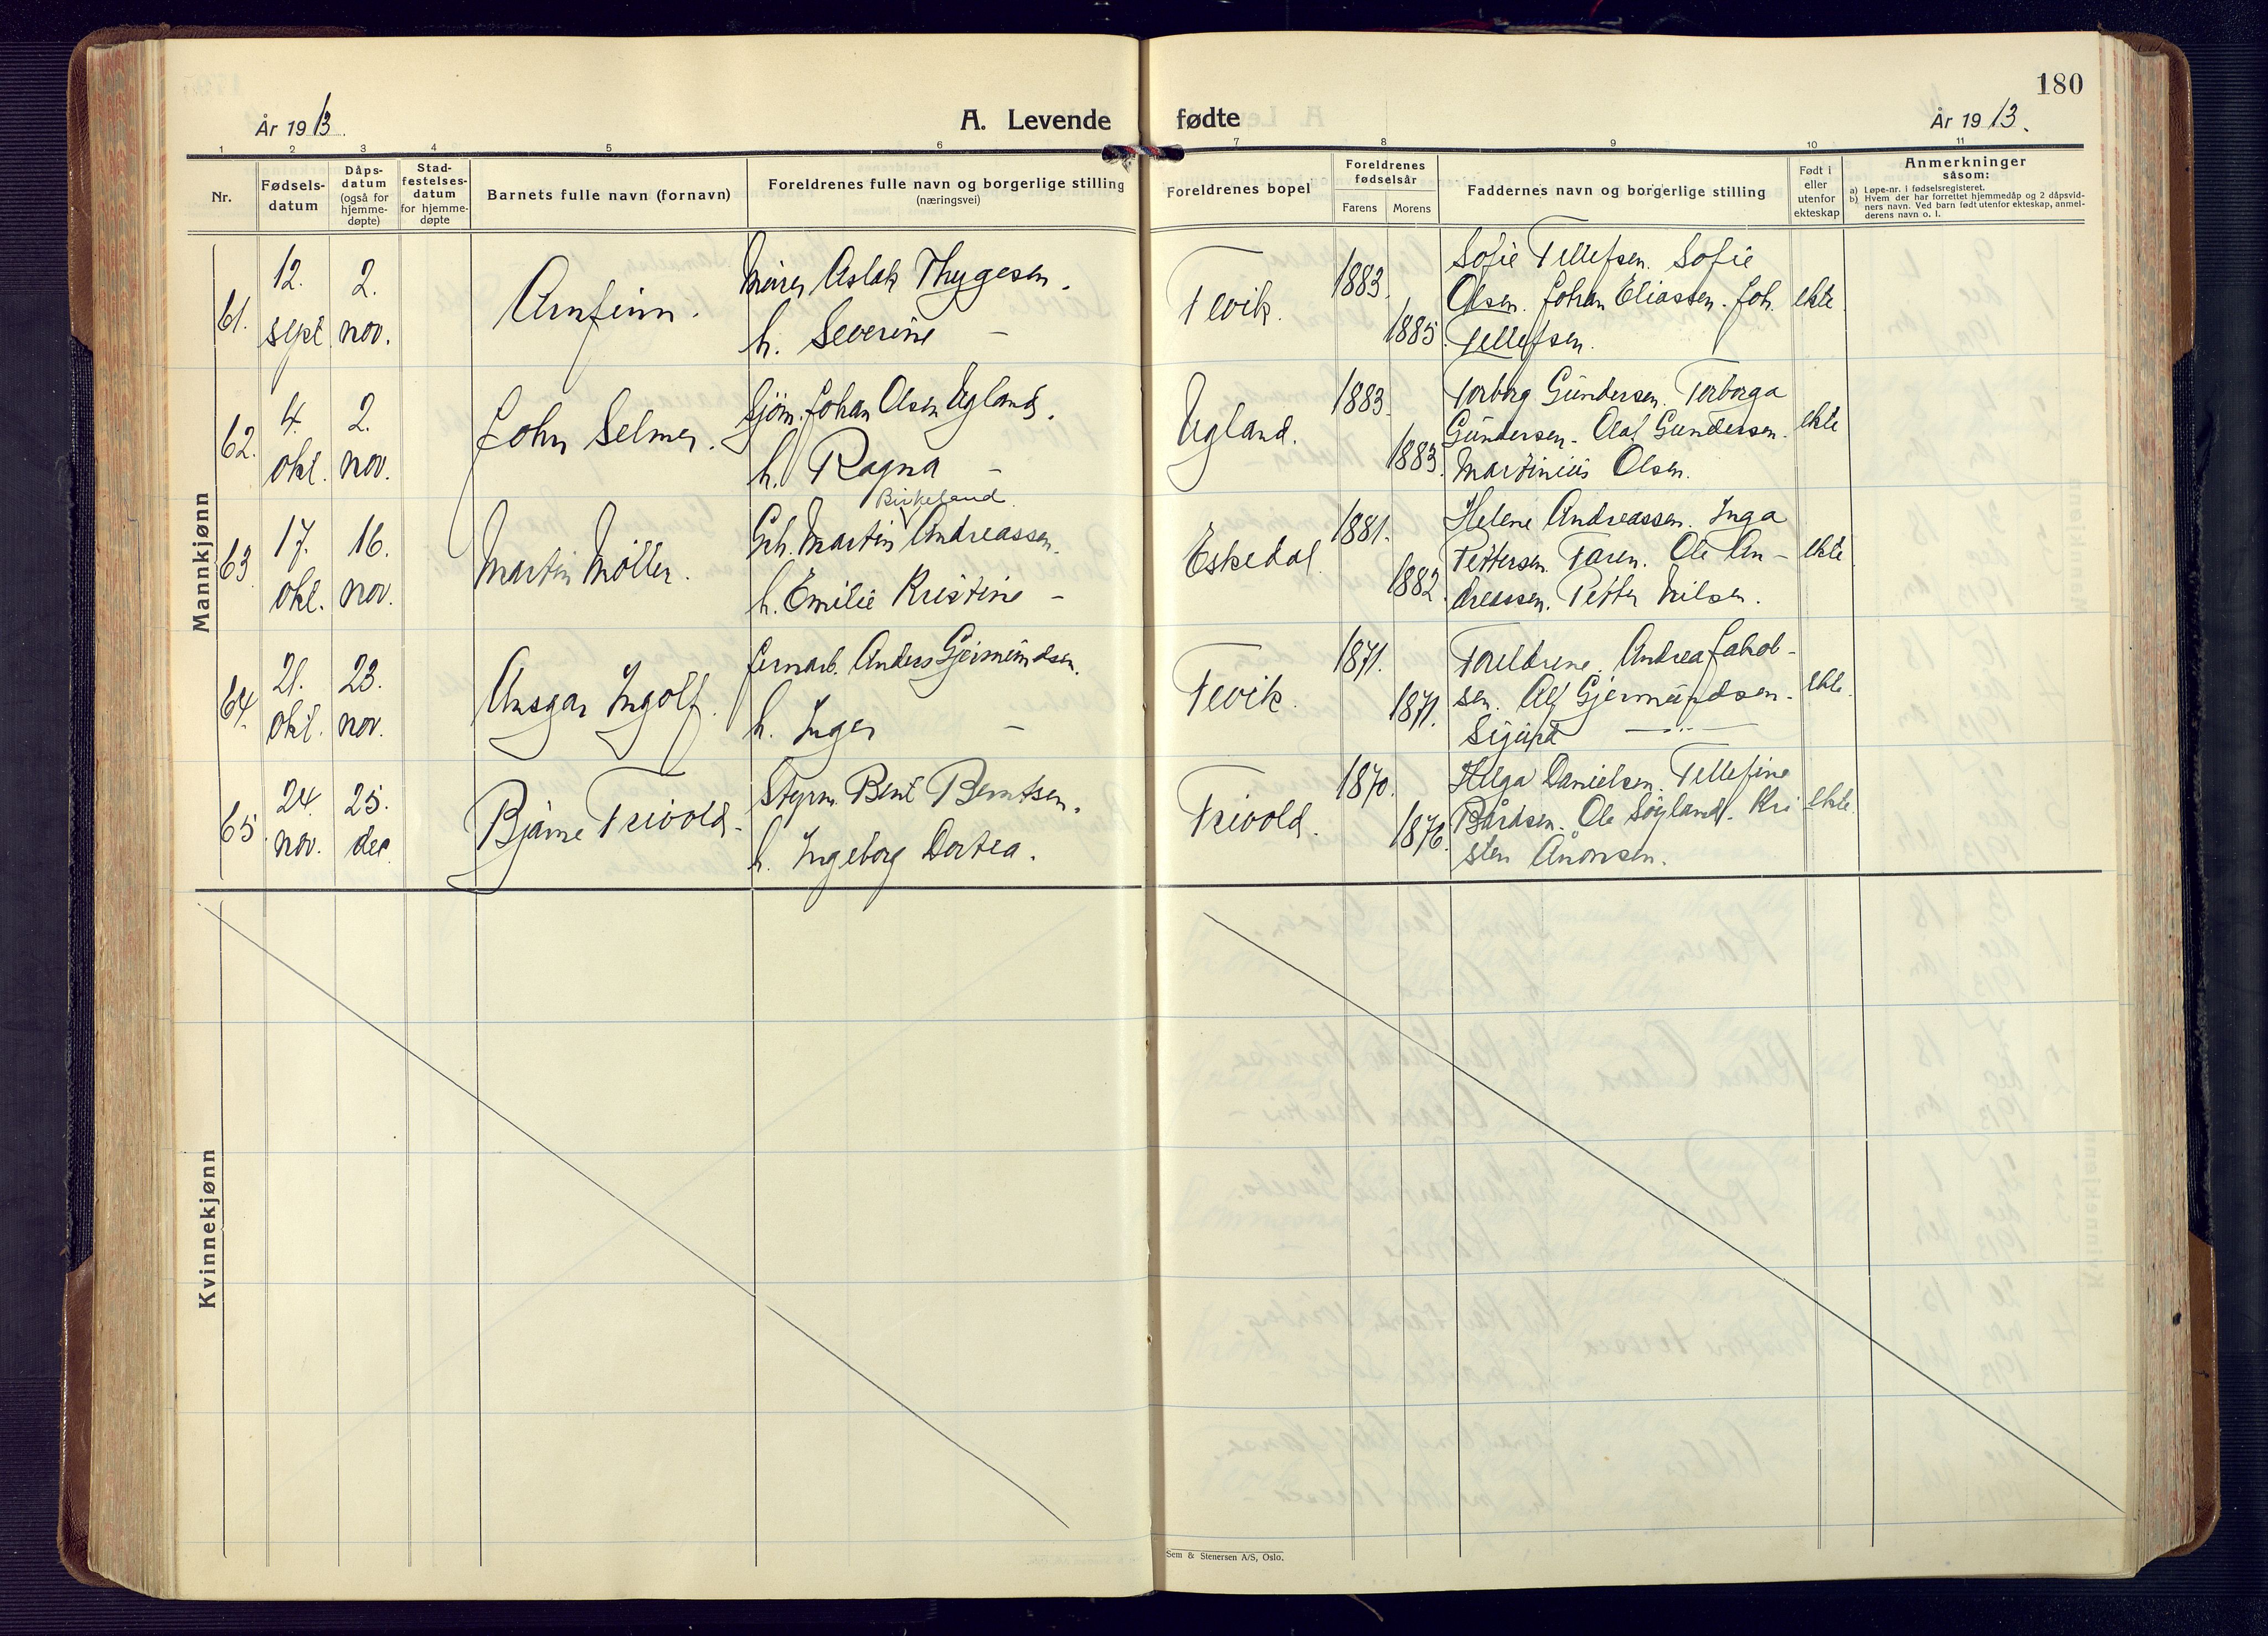 År 1913.
A. Levende
fødte
180
År 1913.
1 2 3 4 5 6 7 8 9 10 11
Nr.
Fødsels-
datum
Dåps-
datum
(også for
hjemme-
døpte)
Stad-
festelses-
datum
for hjemme-
døpte
Barnets fulle navn (fornavn)
Foreldrenes fulle navn og borgerlige stilling
(næringsvei)
Foreldrenes bopel
Foreldrenes
fødselsår
Farens
Morens
Faddernes navn og borgerlige stilling
Født i
eller
utenfor
ekteskap
Anmerkninger
såsom:
a) Løpe-nr. i fødselsregisteret.
b) Hvem der har forrettet hjemmedåp og 2 dåpsvid-
ners navn. Ved barn født utenfor ekteskap, anmel-
derens navn o. l.
Mannkjønn
61.
12.
sept
2.
nov.
Arnfinn.
Murer Aslak Thygesen.
h. Severine –
Fevik.
1883.
1885.
Sofie Tellefsen. Sofie
Olsen. Johan Eliassen. Joh.
Tellefsen.
ekte
62.
4.
okt.
2.
nov.
John Selmer.
Sjøm. Johan Olsen Ugland.
h. Ragna –
Ugland.
1883.
1883.
Torborg Gundersen. Torborga
Gundersen. Olaf Gundersen.
Martinius Olsen.
ekte
63
17.
okt.
16.
nov.
Martin Møller.
Birkeland
Grb. Martin Andreassen.
h. Emilie Kristine –
Eskedal.
1881.
1882.
Helene Andreassen. Inga
Pettersen. Faren. Ole An–
dreassen. Petter Nilsen.
ekte
64.
21.
okt.
23.
nov.
Ansgar Ingolf.
Jernarb. Anders Gjermundsen.
h. Inger –
Fevik.
1871.
1871.
Foreldrene. Andrea Jakob–
sen. Alf Gjermundsen.
Sigurd —"—
ekte.
65.
24.
nov.
25.
dec.
Bjarne Trivold.
Styrm. Bent Berntsen.
h. Ingeborg Dortea.
Trivold.
1870.
1876.
Helga Danielsen. Tellefine
Bårdsen. Ole Søyland. Kri
sten Ånonsen.
ekte.
Kvinnekjønn
Sem & Stenersen A/S, Oslo.